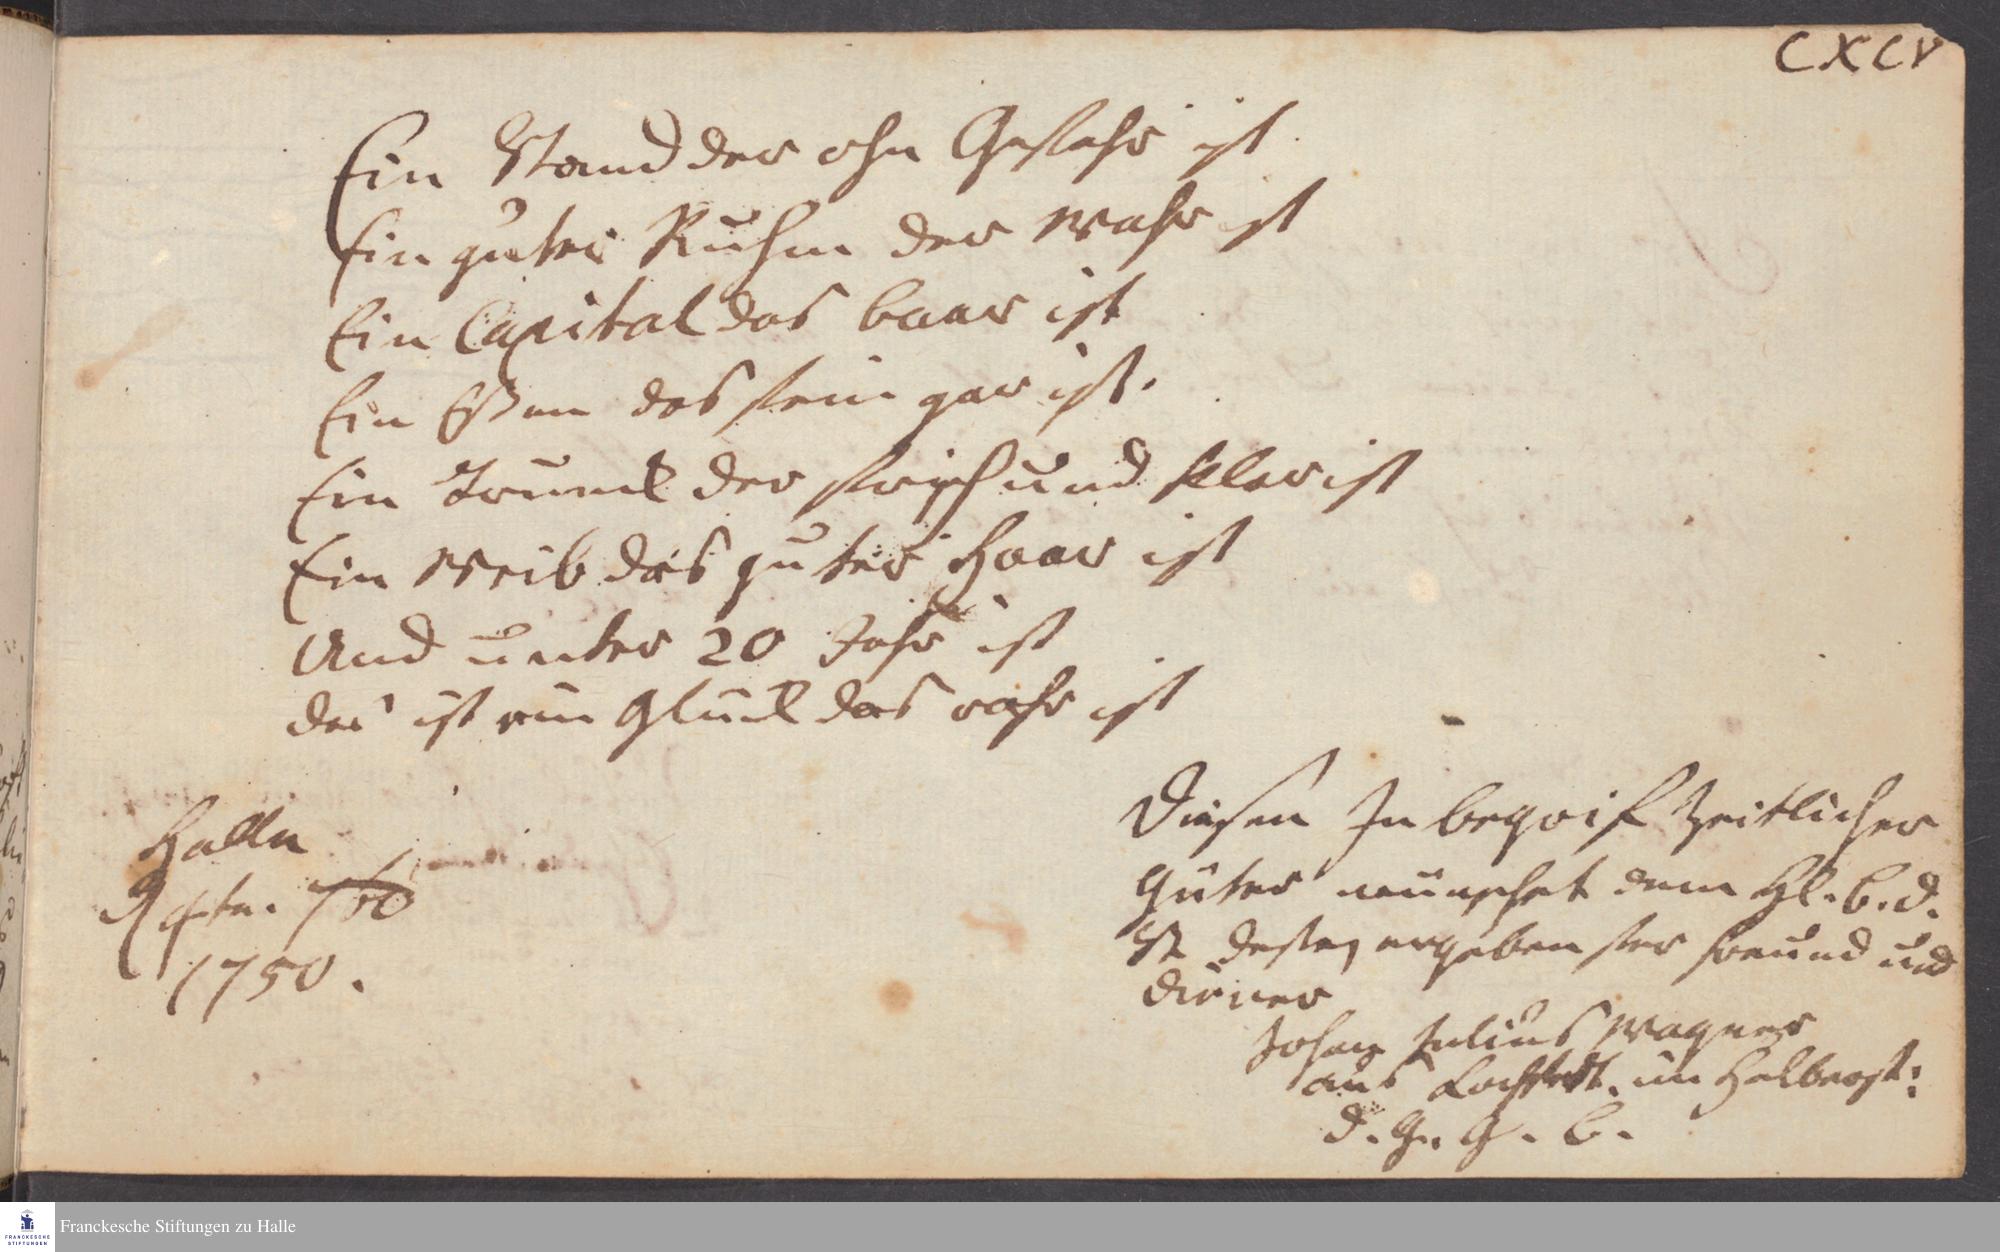 CXCV
Ein Stand der ohn Gefahr ist
Ein guter Ruhm der wahr ist
Ein Capital das baar ist
Ein Eßen das fein gar ist.
Ein Trunck der frisch und klar ist
Ein Weib das guter Haar ist
Und unter 20 Jahr ist
das ist ein Glück das rahr ist
Halle
1750.
Diesen Inbegrif zeitlicher
Güter wünschet dem H. B. d.
St deßen ergebenster freund und
diener
Johan Julius Wagner
aus im Halberst:
d. G. G. b.
Franckesche Stiftungen zu Halle
FRANCKESCHE
STIFTUNGEN